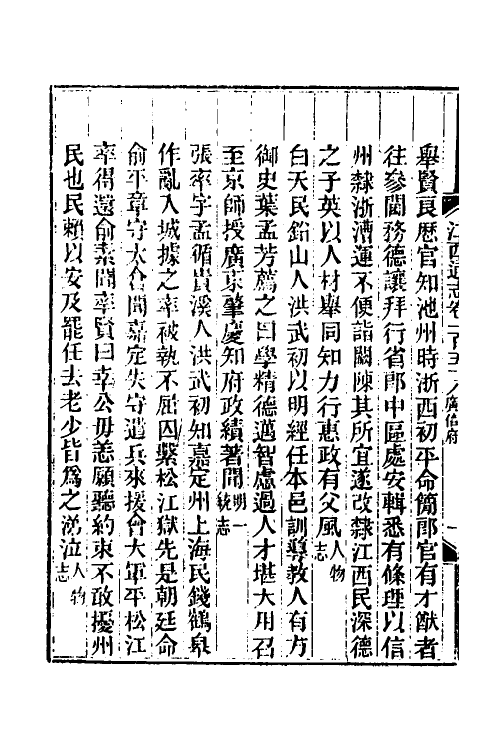 江西通志卷一百五十八 廣信府 一
舉賢良歷官知池州時浙西初平命簡郎官有才猷者
往參閫務德讓拜行省郎中區處安輯悉有條理以信
州隸浙漕運不便詣闕陳其所宜遂改隸江西民深德
之子英以人材舉同知力行惠政有父風人物志
白天民鉛山人洪武初以明經任本邑訓導教人有方
御史葉孟芳薦之曰學精德邁智慮過人才堪大用召
至京師授廣東肇慶知府政績著聞明一統志
張率字孟循貴溪人洪武初知嘉定州上海民錢鶴皋
作亂入城據之率被執不屈囚繫松江獄先是朝廷命
俞平章守太倉聞嘉定失守遣兵來援會大軍平松江
率得還俞素聞率賢曰幸公毋恙願聽約束不敢擾州
民也民賴以安及罷任去老少皆為之涕泣人物志